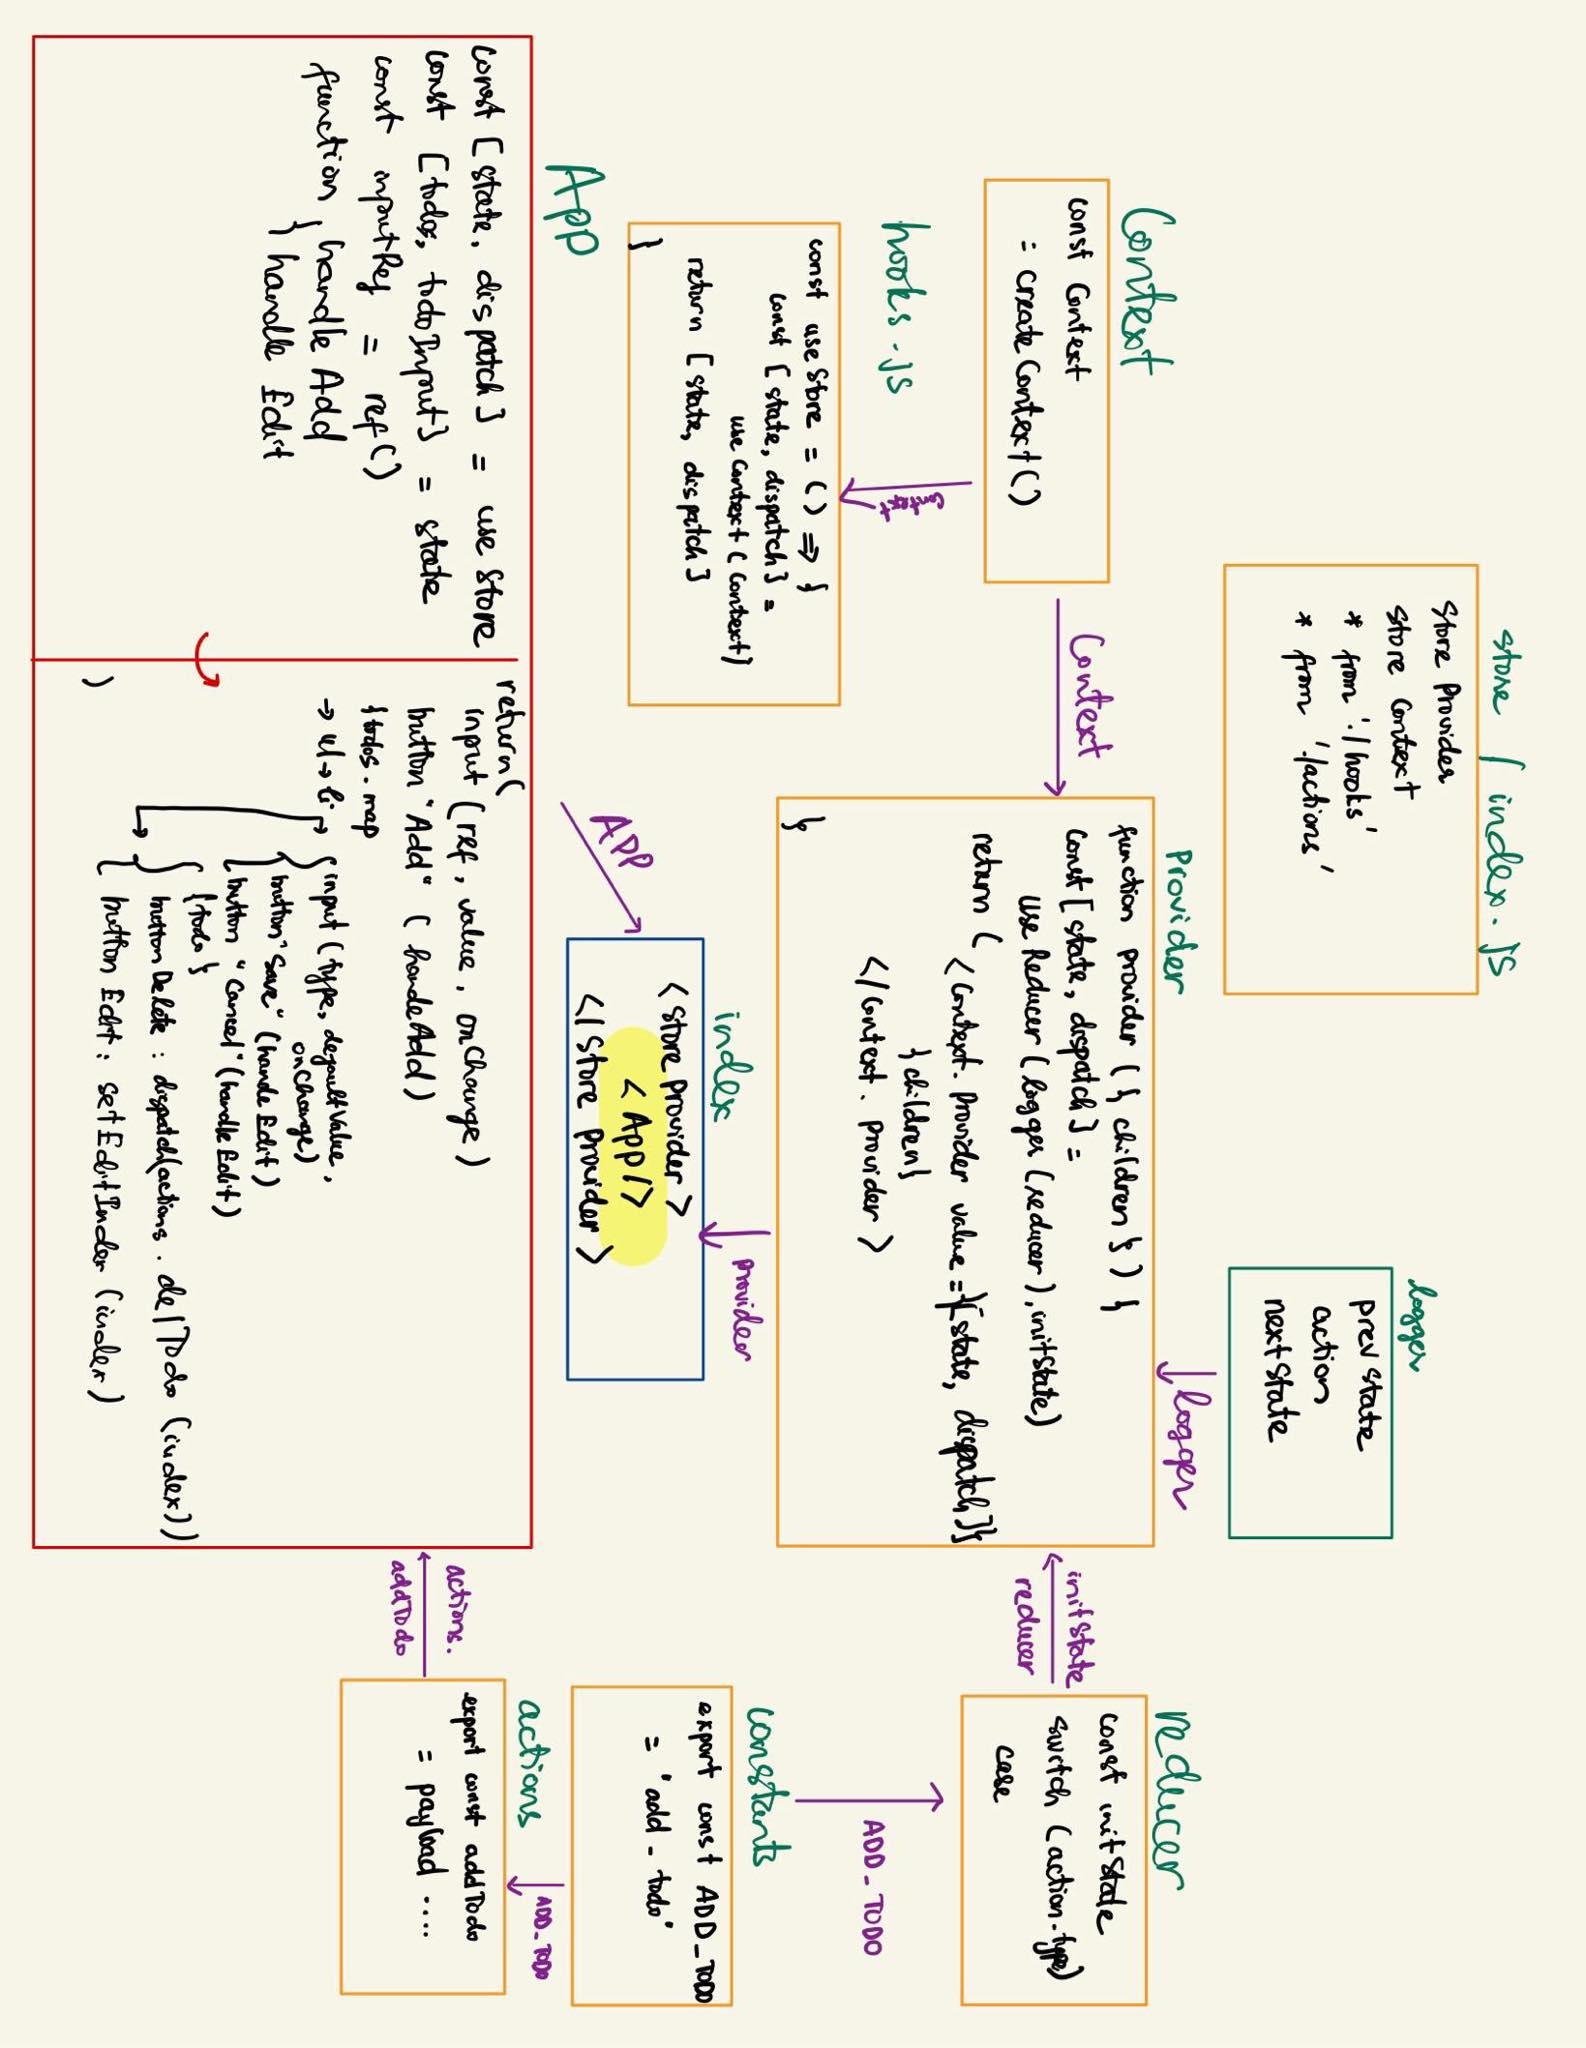 store / index.js
Store Provider
Store Context
* from './hooks'
* from './actions'
logger
prev state
action
next state
logger
Context
const Context
= createContext()
Context
Context
Provider
function provider ( { children } ) {
const [ state, dispatch ] =
use Reducer ( logger (reducer), initState)
return (
< Context. Provider value = {[state, dispatch]}
{ children }
</ Context. provider >
}
reducer
const initState
switch (action.type)
case
initState
reducer
ADD_TODO
hooks.js
const use Store = () => {
const [ state, dispatch ] =
use Context ( Context)
return [ state, dispatch ]
}
provider
index
< Store Provider >
< App />
</ Store Provider >
APP
constants
export const ADD_TODO
= "add_todo"
ADD_TODO
actions
export const addTodo
= payload ....
actions.
addTodo
App
const [state, dispatch] = use Store
const [todos, todoInput] = state
const inputRef = ref()
function { handle Add
handle Edit
return (
input (ref, value, onChange)
button "Add" ( handeAdd)
{ todos. map
→ ul → li →
{ input (type, defaultValue,
onChange)
button "Save" (hande Edit)
button "Cancel" (handle Edit)
{ {todo}
button Delete : dispatch(actions . delTodo (index))
button Edit : setEditIndex (index)
)